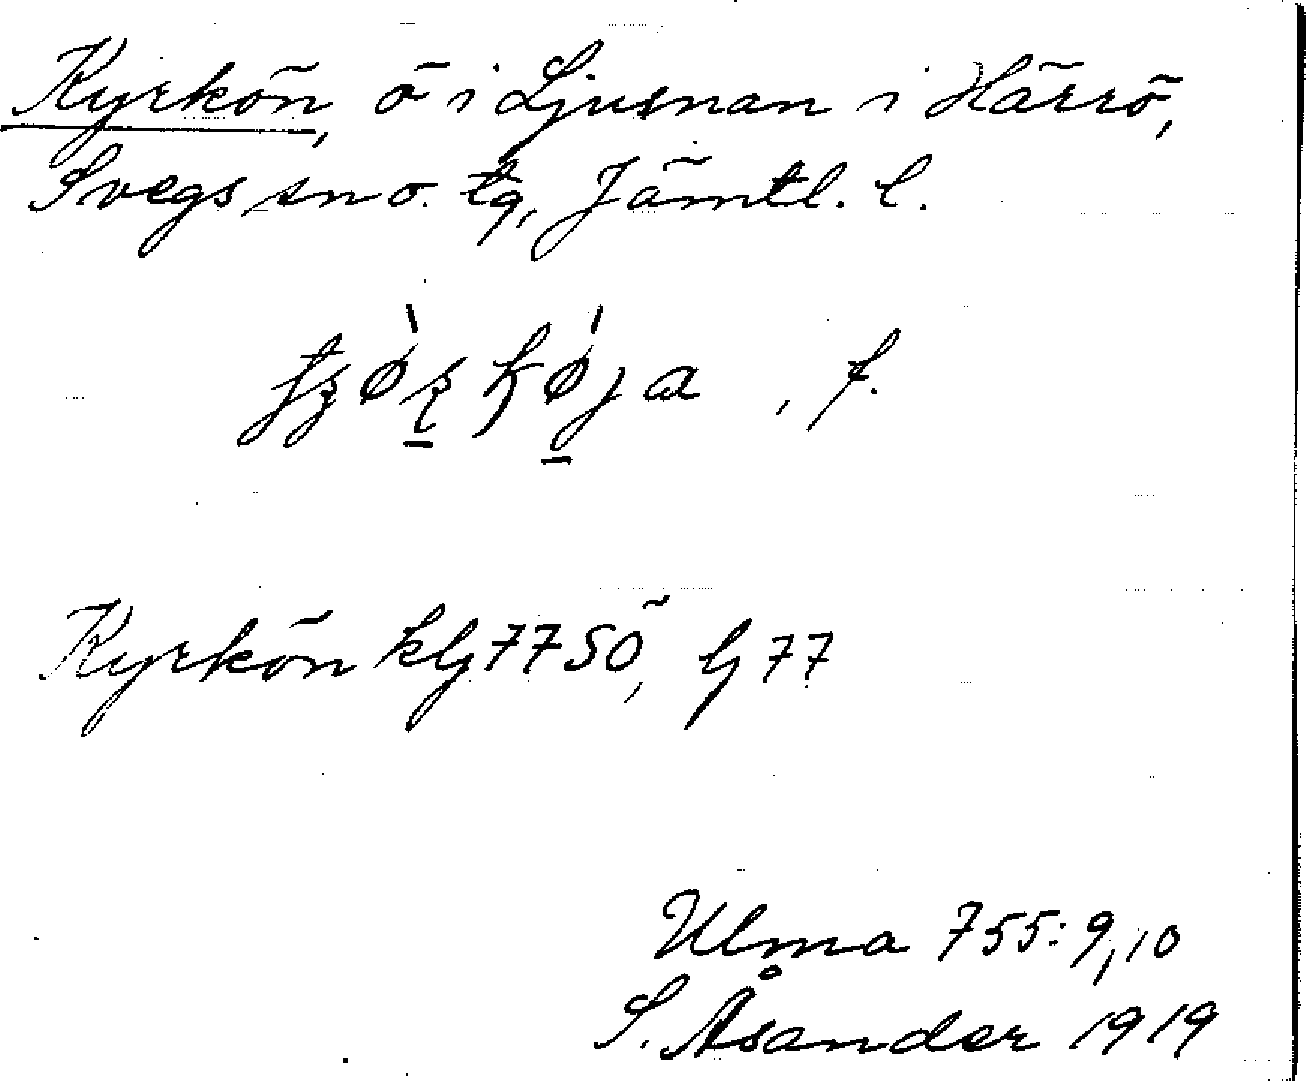 Kyrkön, ö i Ljusnan i Härrö,
Svegs sn o. tg, Jämtl. l.
, f.
Kyrkön kbl 77 SÖ, bl 77
Ulma 755: 9, 10
S. Åsander 1919